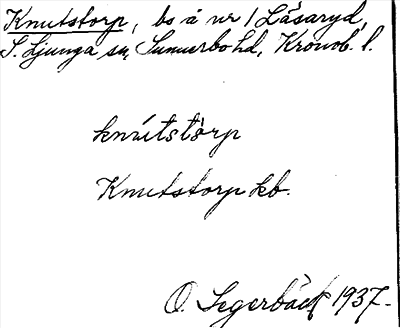 Knutstorp, bs å nr 1 Låsaryd,
S. Ljunga sn, Sunnerbo hd, Kronob. l.
knút̀stòrp
Knutstorp kb.
O. Segerbäck 1937-